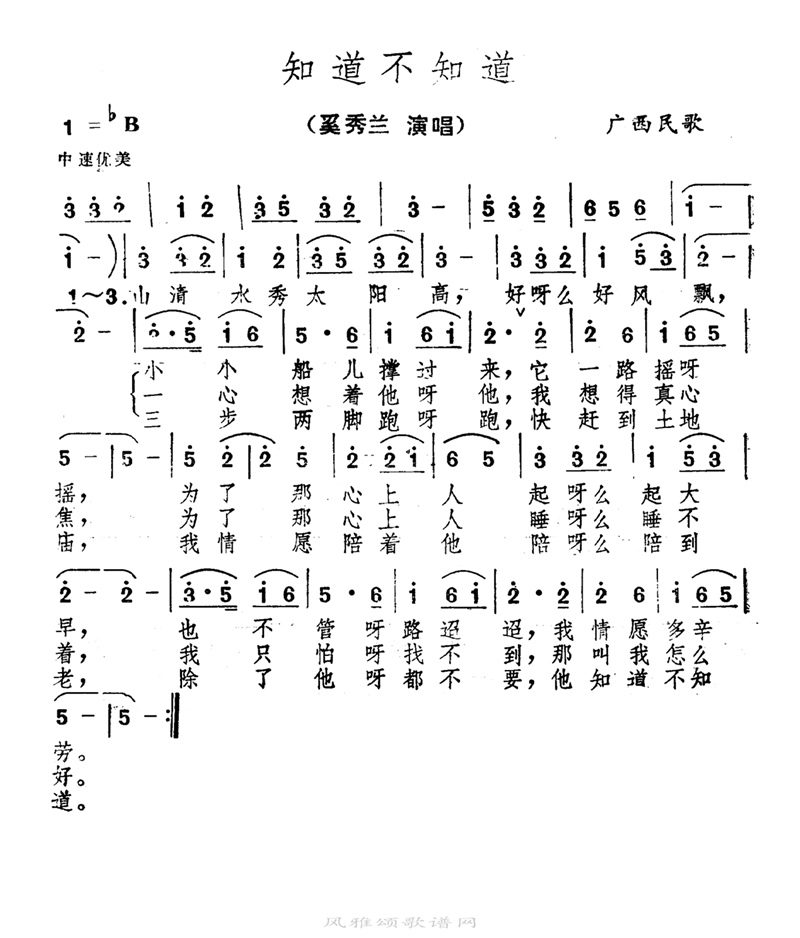 知道不知道
1=♭B （奚秀兰 演唱） 广西民歌
中速优美
3 3 2 | 1 2 | 3 5 3 2 | 3 － | 5 3 2 | 6 5 6 | 1 － |
1 － ) | 3 3 2 | 1 2 | 3 5 3 2 | 3 － | 3 3 2 | 1 5 3 | 2 － |
1～3.山清 水秀太 阳高，好呀么好风飘，
2 － | 2·5 1 6 | 5·6 | 1 6 1 | 2·2 | 2 6 | 1 6 5 |
小小船儿撑过来，它一路摇呀
一心想着他呀他，我想得真心
三步两脚跑呀跑，快赶到土地
5 － | 5 － | 5 2 | 2 5 | 2 2 1 | 6 5 | 3 3 2 | 1 5 3 |
摇，为了那心上人起呀么起大
焦，为了那心上人睡呀么睡不
庙，我情愿陪着他陪呀么陪到
2 － | 2 － | 3·5 1 6 | 5·6 | 1 6 1 | 2·2 | 2 6 | 1 6 5 |
早，也不管呀路迢迢，我情愿多辛
着，我只怕呀找不到，那叫我怎么
老，除了他呀都不要，他知道不知
5 － | 5 － :‖
劳。
好。
道。
风雅颂歌谱网